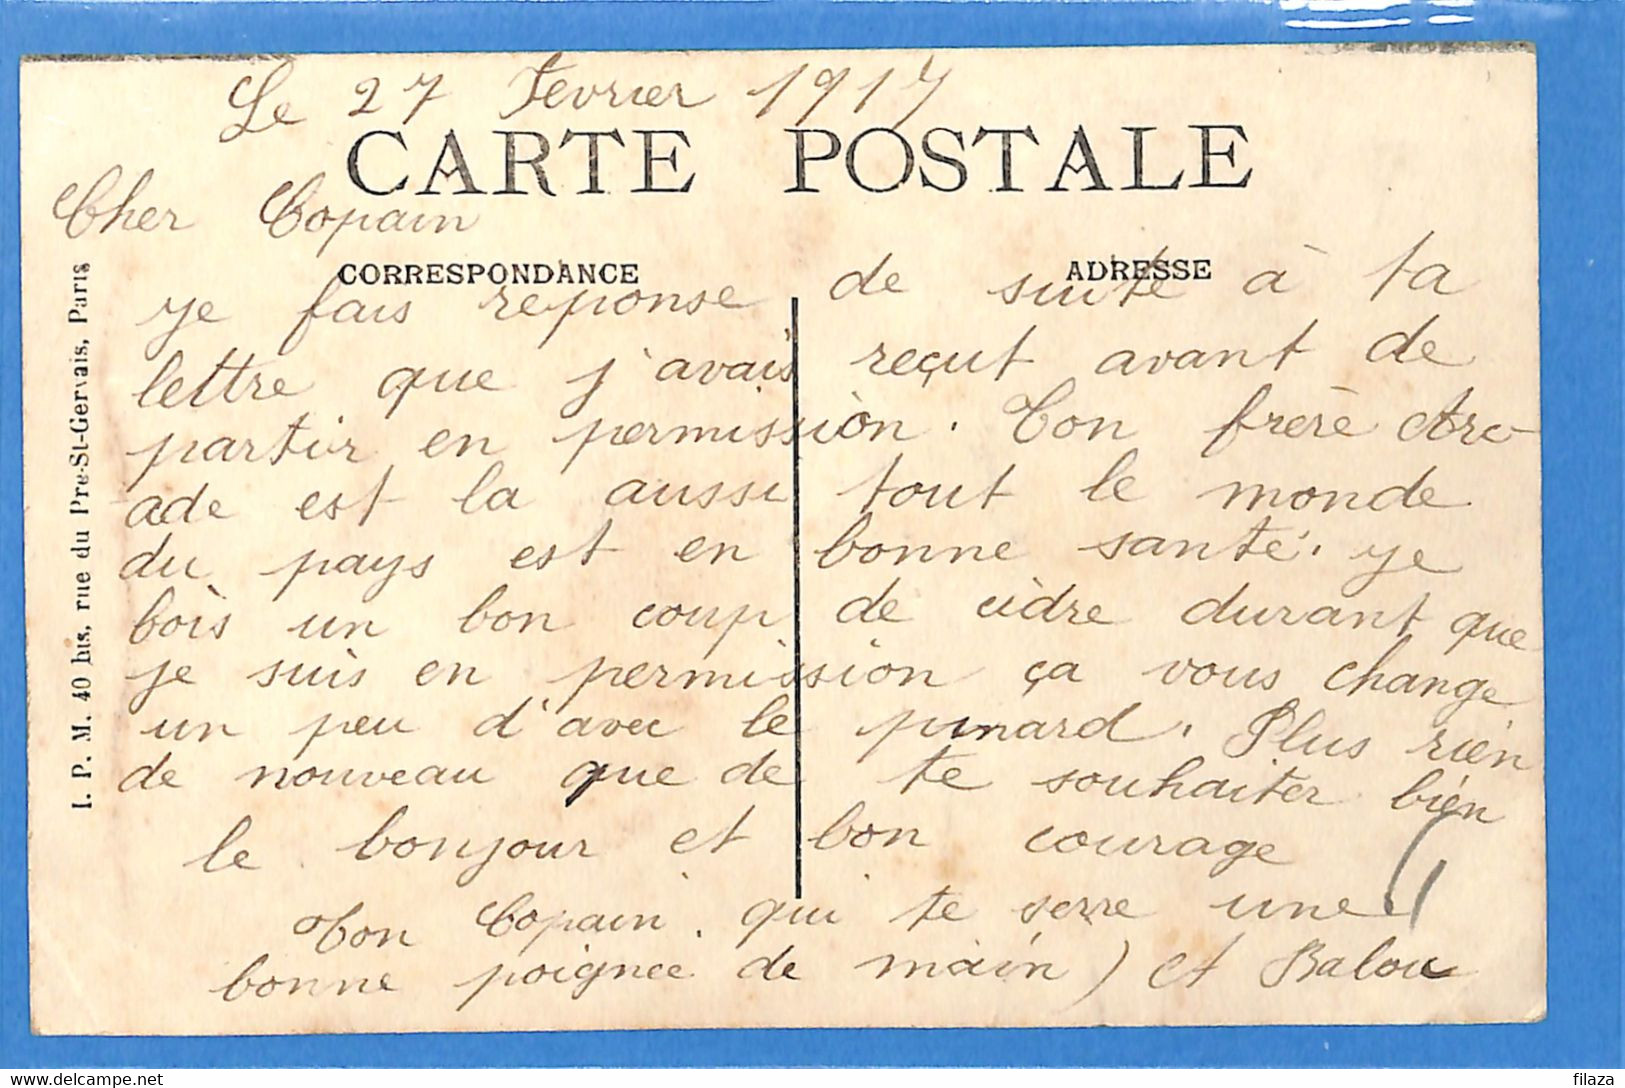 Le 27 Fevrier 1917
CARTE POSTALE
Cher Copain
CORRESPONDANCE
ADRESSE
je fais reponse de suite à ta
lettre que j'avais reçut avant de
partir en permission. Ton frère Arc-
ade est la aussi tout le monde
du pays est en bonne santé. je
bois un bon coup de cidre durant que
je suis en permission ça vous change
un peu d'avec le pinard. Plus rien
de nouveau que de te souhaiter bien
le bonjour et bon courage
Ton Copain. qui te serre une
bonne poignée de main) et Balou
I. P. M. 40 bis, rue du Pré-St-Gervais, Paris
filaza